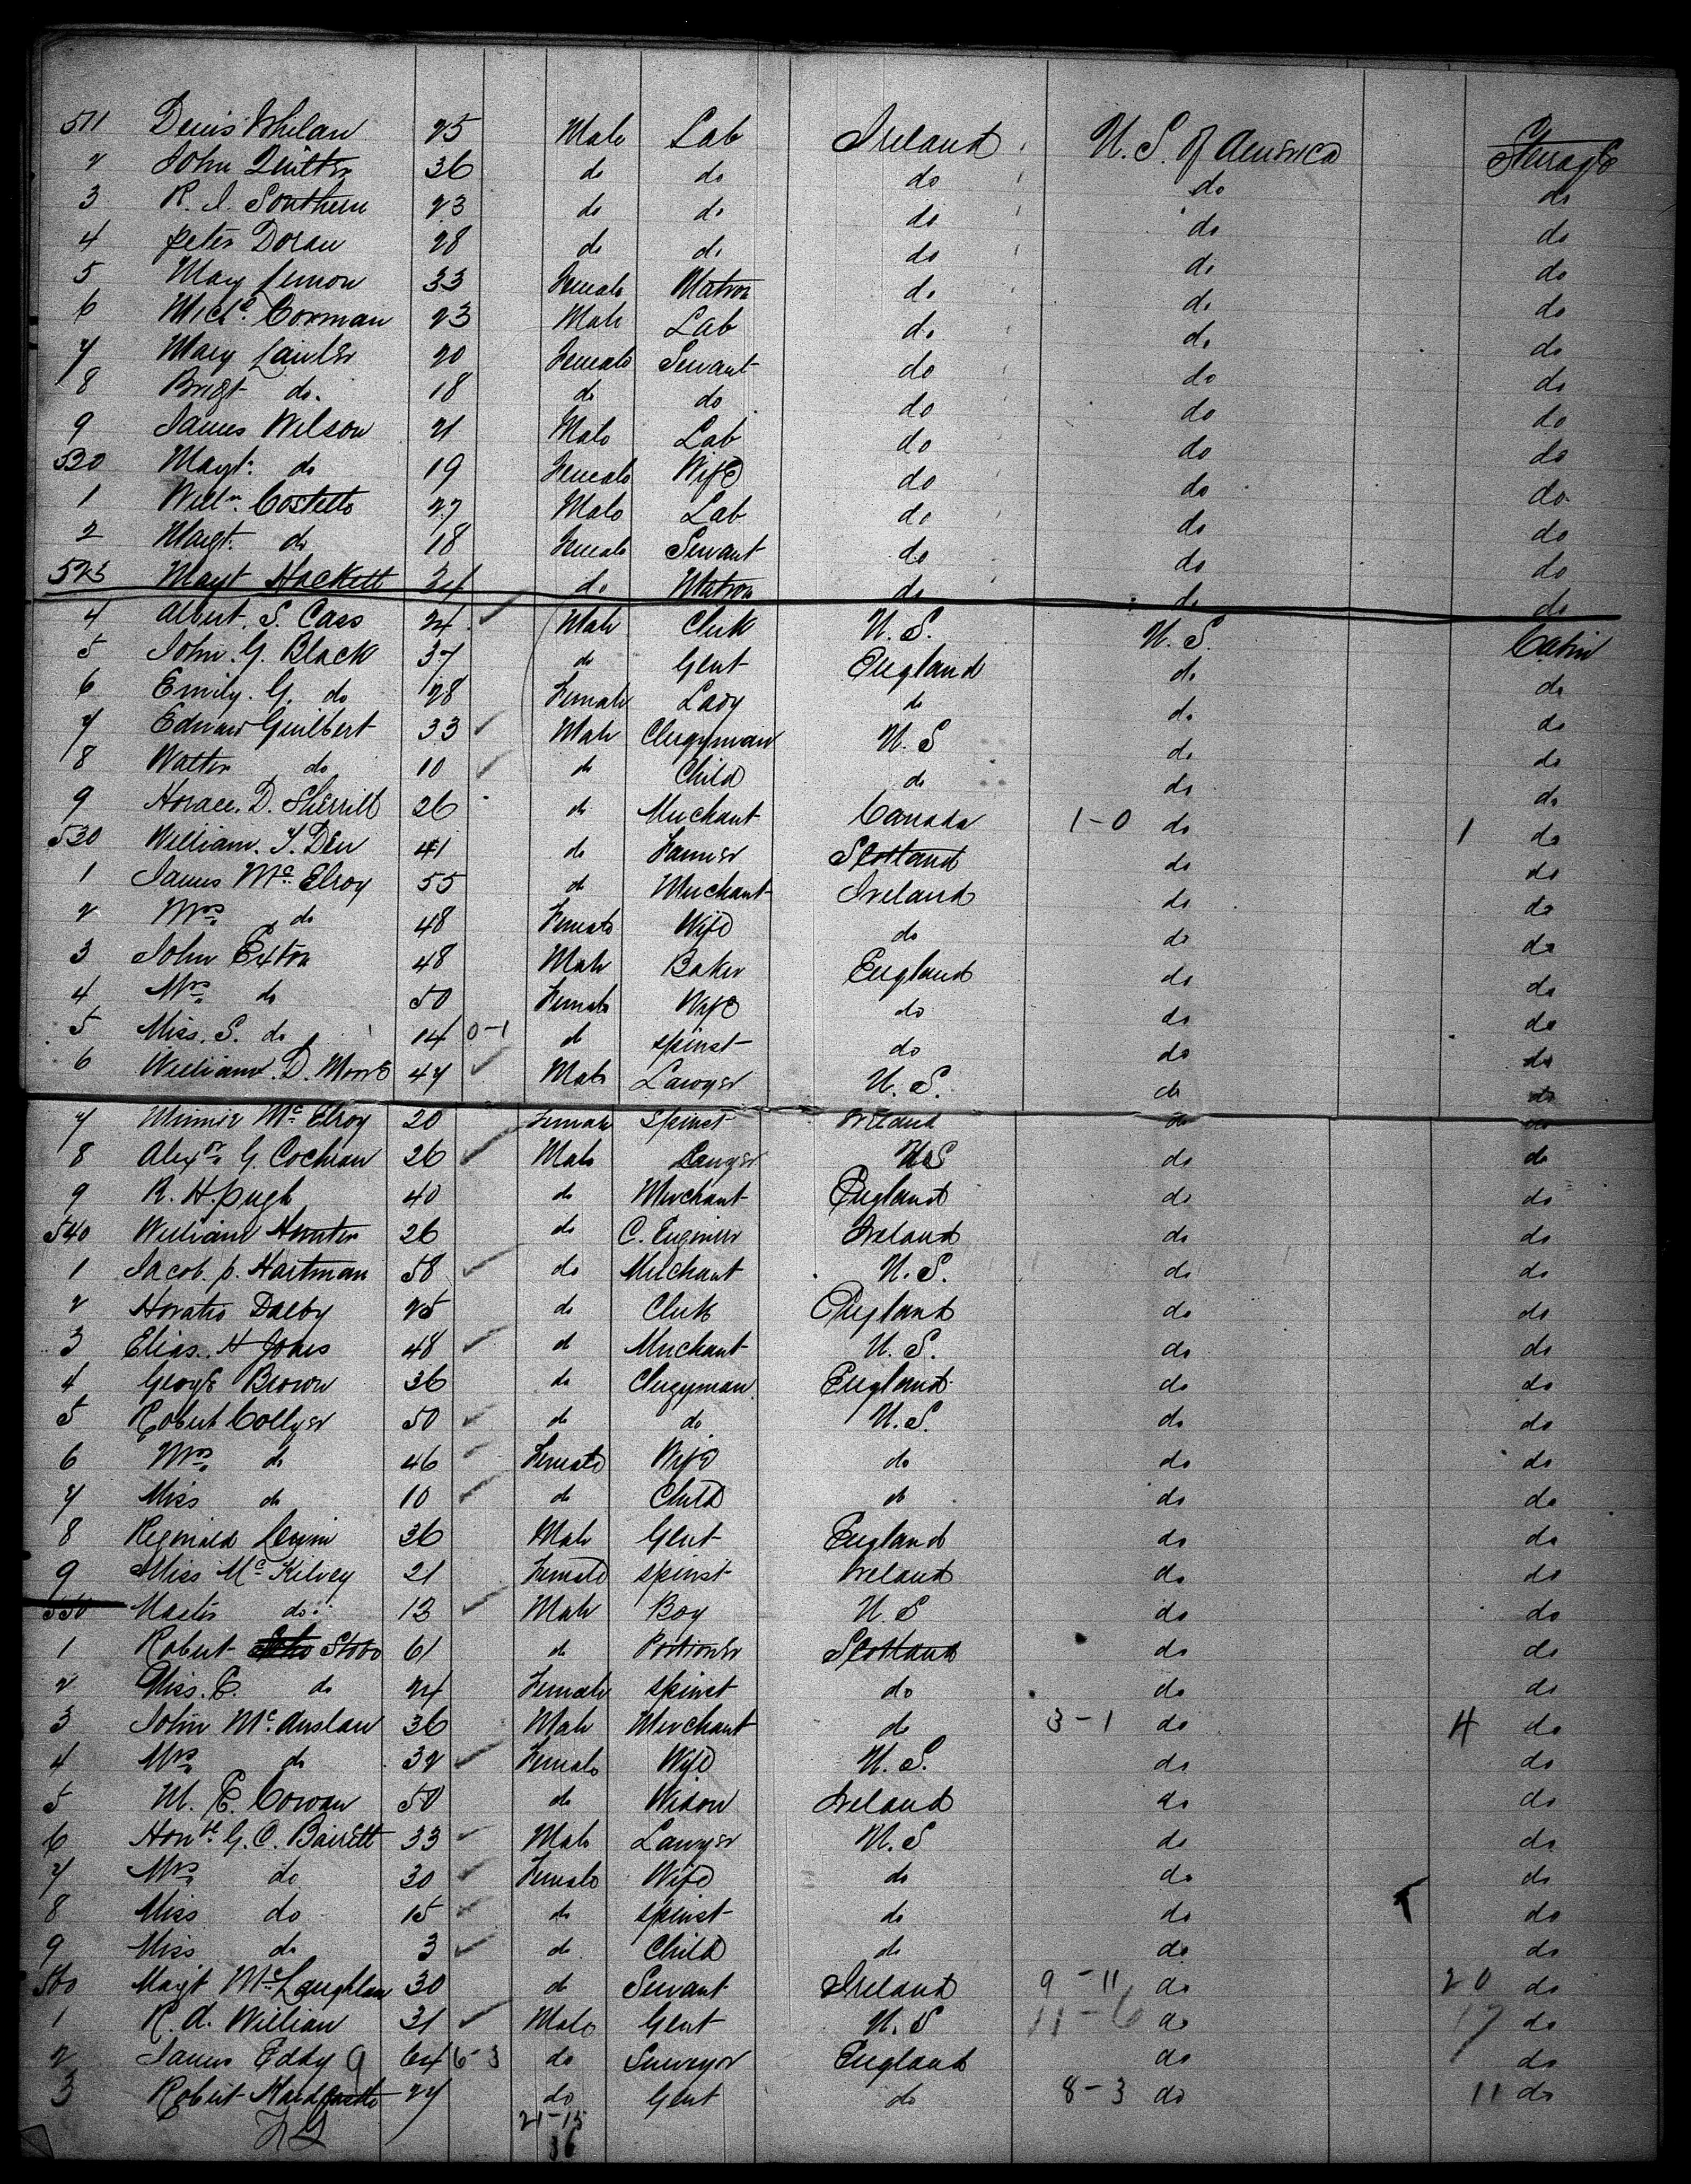 511 Denis Whelan 25 Male Lab Ireland U. S. of America Steerage
2 John Quilter 36 do do do do do
3 R. J. Southern 23 do do do do do
4 Peter Doran 28 do do do do do
5 Mary Lennon 33 Female Matron do do do
6 Michl. Gorman 23 Male Lab do do do
7 Mary Lawler 20 Female Servant do do do
8 Bridgt do. 18 do do do do do
9 James Wilson 21 Male Lab do do do
520 Margt. do 19 Female Wife do do do
1 Willm. Costello 27 Male Lab do do do
2 Margt. do 18 Female Servant do do do
523 Margt Hackett 34 do Matron do do do
4 Albert. S. Cass 24 Male Clerk U. S. U. S. Cabin
5 John. G. Black 37 do Gent England do do
6 Emily. G. do 28 Female Lady do do do
7 Edward Guilbert 33 Male Clergyman U. S do do
8 Walter do 10 do Child do do do
9 Horace. D. Sherrill 26 do Merchant Canada 1-0 do 1 do
530 William. Y. Dew 41 do Farmer Scotland do do
1 James Mc. Elroy 55 do Merchant Ireland do do
2 Mrs. do 48 Female Wife do do do
3 John Exton 48 Male Baker England do do
4 Mrs. do 50 Female Wife do do do
5 Miss. S. do 14 0-1 do Spinst do do do
6 William. D. Moore 47 Male Lawyer U. S. do do
7 Minnie Mc Elroy 20 Female Spinst Ireland do do
8 Alexr. G. Cochran 26 Male Lawyer U S do do
9 R. H. Pugh 40 do Merchant England do do
540 William 26 do C. Engineer Ireland do do
1 Jacob. P. Hartman 58 do Merchant U. S. do do
2 Horatio Dalby 25 do Clerk England do do
3 Elias. H Jones 48 do Merchant U. S. do do
4 George Brown 36 do Clergyman England do do
5 Robert Collyer 50 do do U. S. do do
6 Mrs. do 46 Female Wife do do do
7 Miss do 10 do Child do do do
8 Reginald 36 Male Gent England do do
9 Miss Mc Kilvey 21 Female Spinst Ireland do do
550 Master do. 13 Male Boy U. S do do
1 Robert Stobo 61 do Portioner Scotland do do
2 Miss. E. do 24 Female Spinst do do do
3 John Mc. Auslan 36 Male Merchant do 3-1 do 4 do
4 Mrs. do 32 Female Wife U. S. do do
5 M. E. Cowan 50 do Widow Ireland do do
6 Honble G. C. Barrett 33 Male Lawyer U. S do do
7 Mrs. do 30 Female Wife do do do
8 Miss do 15 do Spinst do do do
9 Miss do 3 do Child do do do
560 Margt McLaughlan 30 do Servant Ireland 9-11 do 20 do
1 R. A. Willian 31 Male Gent U. S 11-6 do 17 do
2 James Eddy 9 64 6-3 do Surveyor England do do
3 Robert 27 do Gent do 8-3 do 11 do
21-15
36